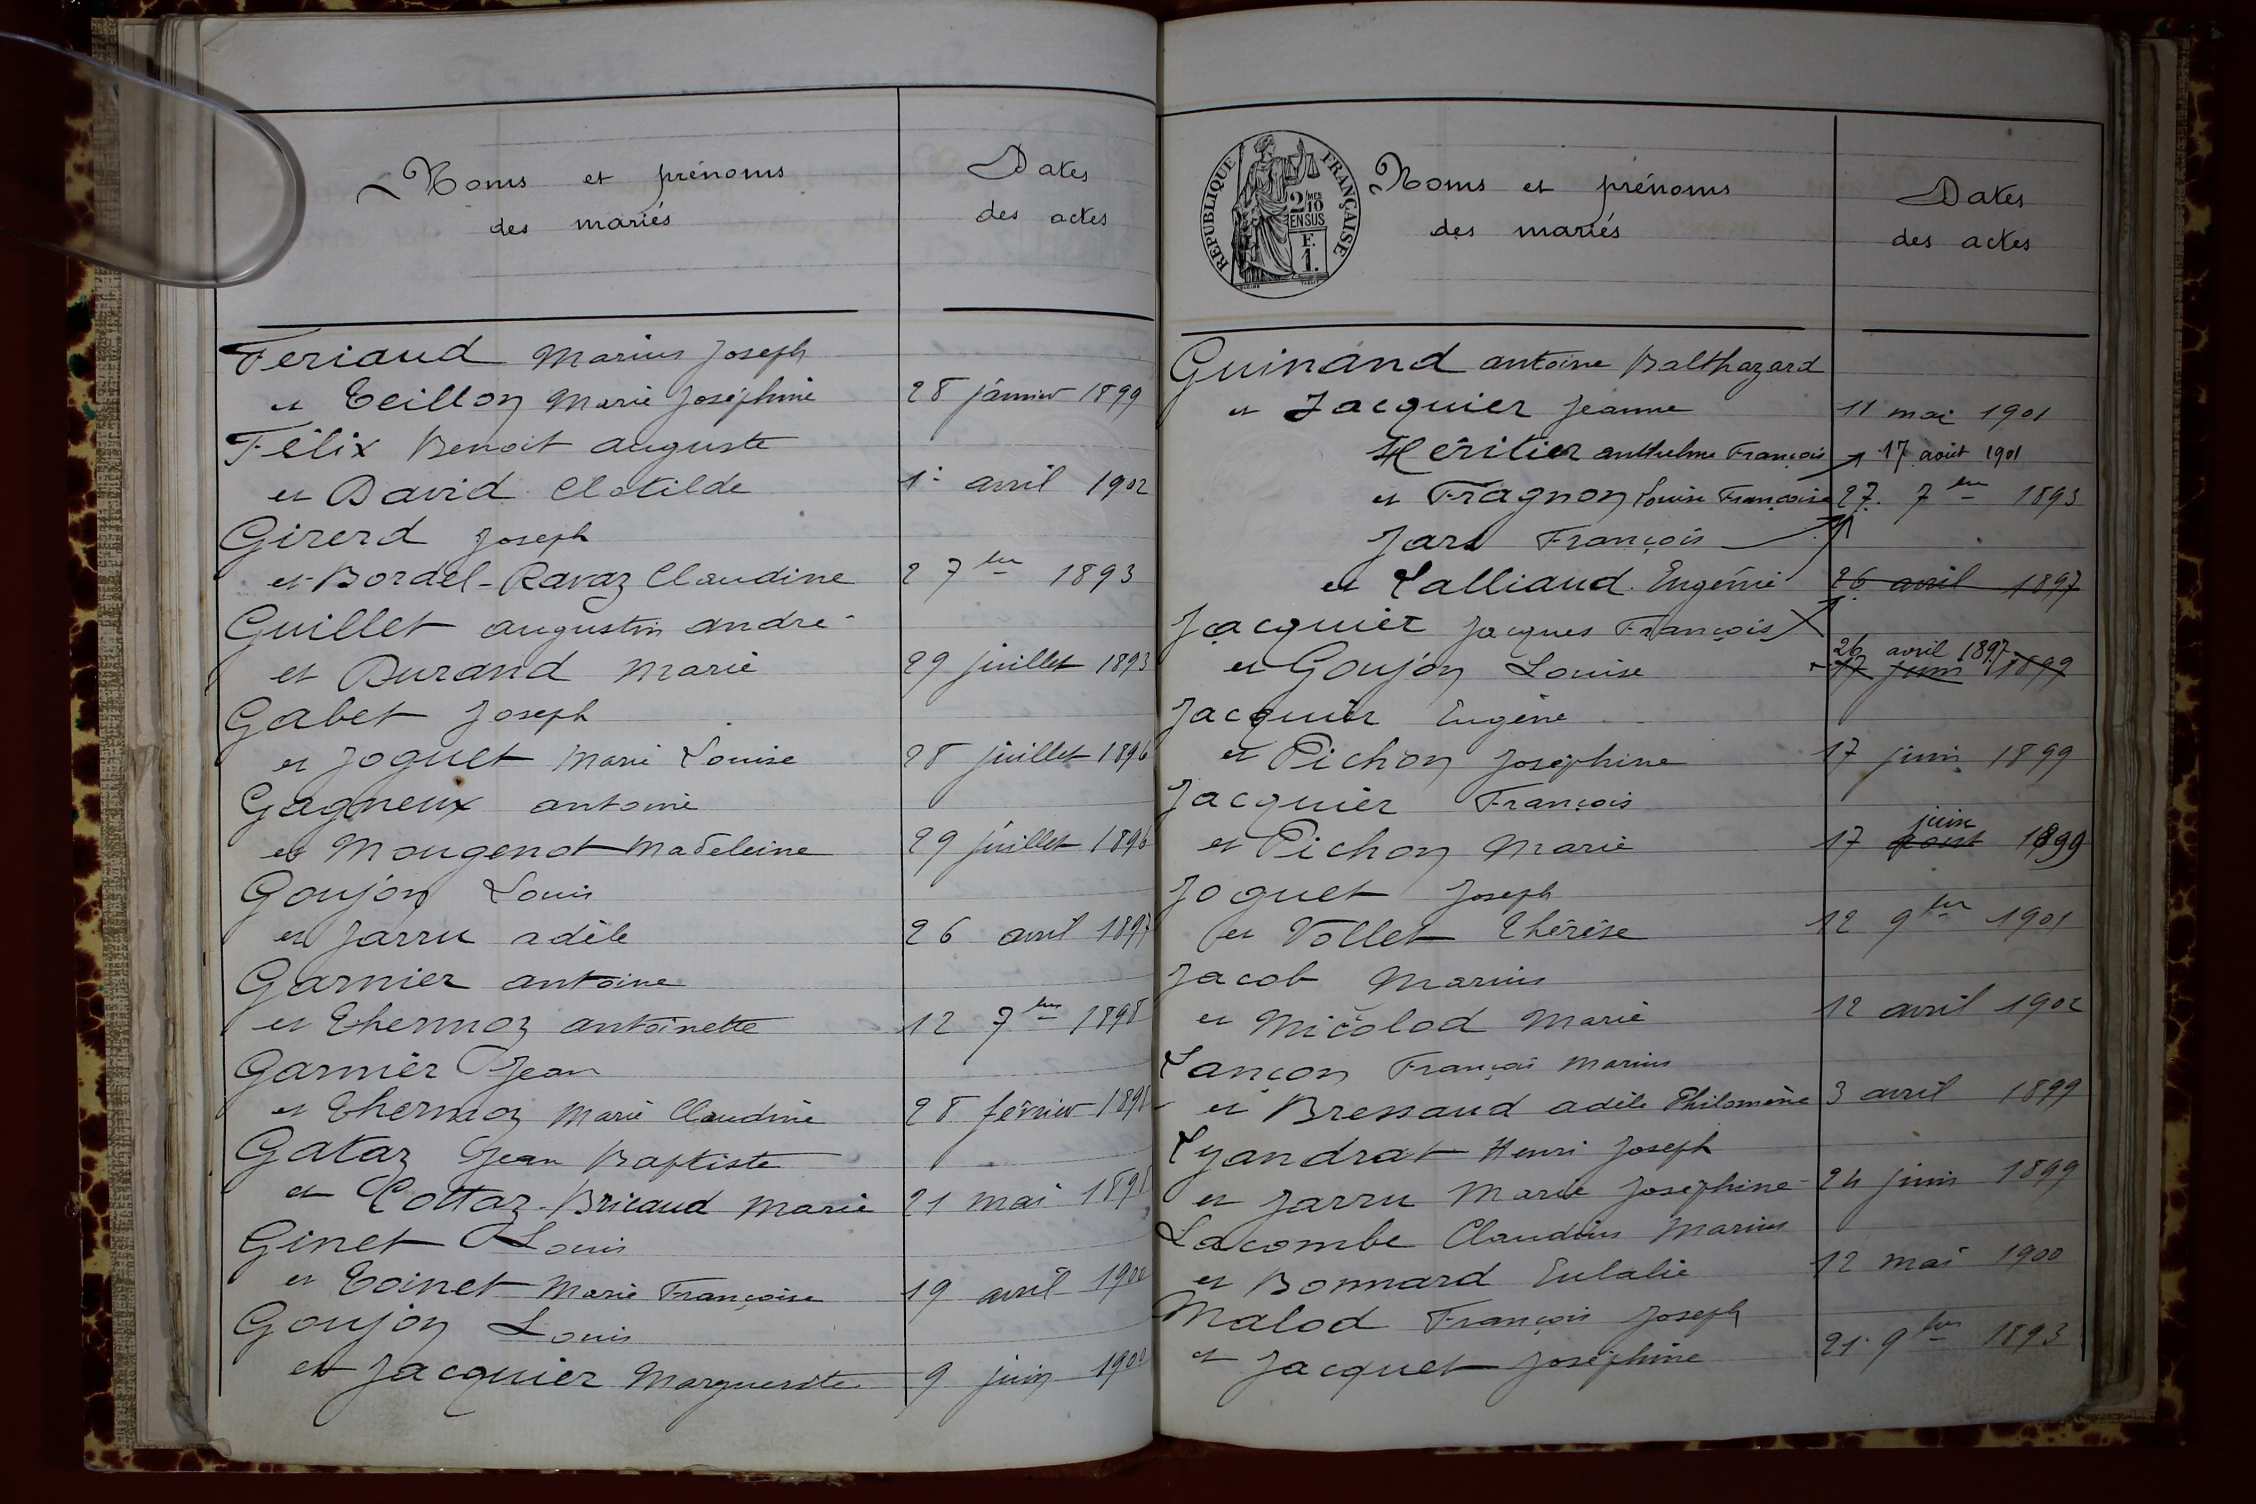 Noms et prénoms
des mariés
Dates
des actes
Feriaud Marius Joseph
et Teillon Marie Joséphine 28 janvier 1899
Félix Benoit auguste
et David Clotilde 1er avril 1902
Girerd Joseph
et Bordel-Ravaz Claudine 2 7bre 1893
Guillet augustin andré
et Durand Marie 29 juillet 1893
Gabet Joseph
et Joguet Marie Louise 28 juillet 1896
Gagneux antoine
et Mougenot Madeleine 29 juillet 1896
Goujon Louis
et Jarru adèle 26 avril 1897
Garnier antoine
et Thermoz antoinette 12 7bre 1898
Garnier Jean
et Thermoz Marie Claudine 28 février 1898
Gataz Jean Baptiste
et Cottaz-Bricaud Marie 21 mai 1898
Ginet Louis
et Toinet Marie Françoise 19 avril 1900
Goujon Louis
et Jacquier Marguerite 9 juin 1900
RÉPUBLIQUE FRANÇAISE
2/10 MES
EN SUS
F.
1.
Noms et prénoms
des mariés
Dates
des actes
Guinand antoine Balthazard
et Jacquier Jeanne 11 mai 1901
Héritier anthelme François 17 août 1901
et Fragnon Louise Françoise 27 7bre 1893
Jars François
et Lalliaud Eugénie 26 avril 1897
Jacquier Jacques François
26 avril 1897
et Goujon Louise 17 juin 1899
Jacquier Eugène
et Pichon Joséphine 17 juin 1899
Jacquier François
juin
et Pichon Marie 17 août 1899
Joguet Joseph
et Vollet Thérèse 12 9bre 1901
Jacob Marius
et Micolod Marie 12 avril 1902
Lançon François Marius
et Bressaud adèle Philomène 3 avril 1899
Lyandrat Henri Joseph
et Jarru Marie Joséphine 24 juin 1899
Lacombe Claudius Marius
et Bonnard Eulalie 12 mai 1900
Malod François Joseph
et Jacquet Joséphine 21 9bre 1893